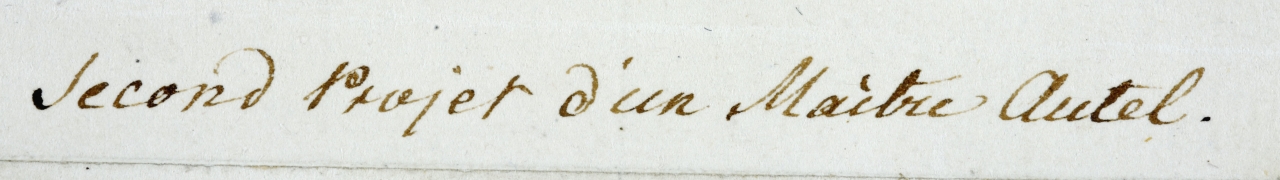 Second Projet d'un Maître Autel.